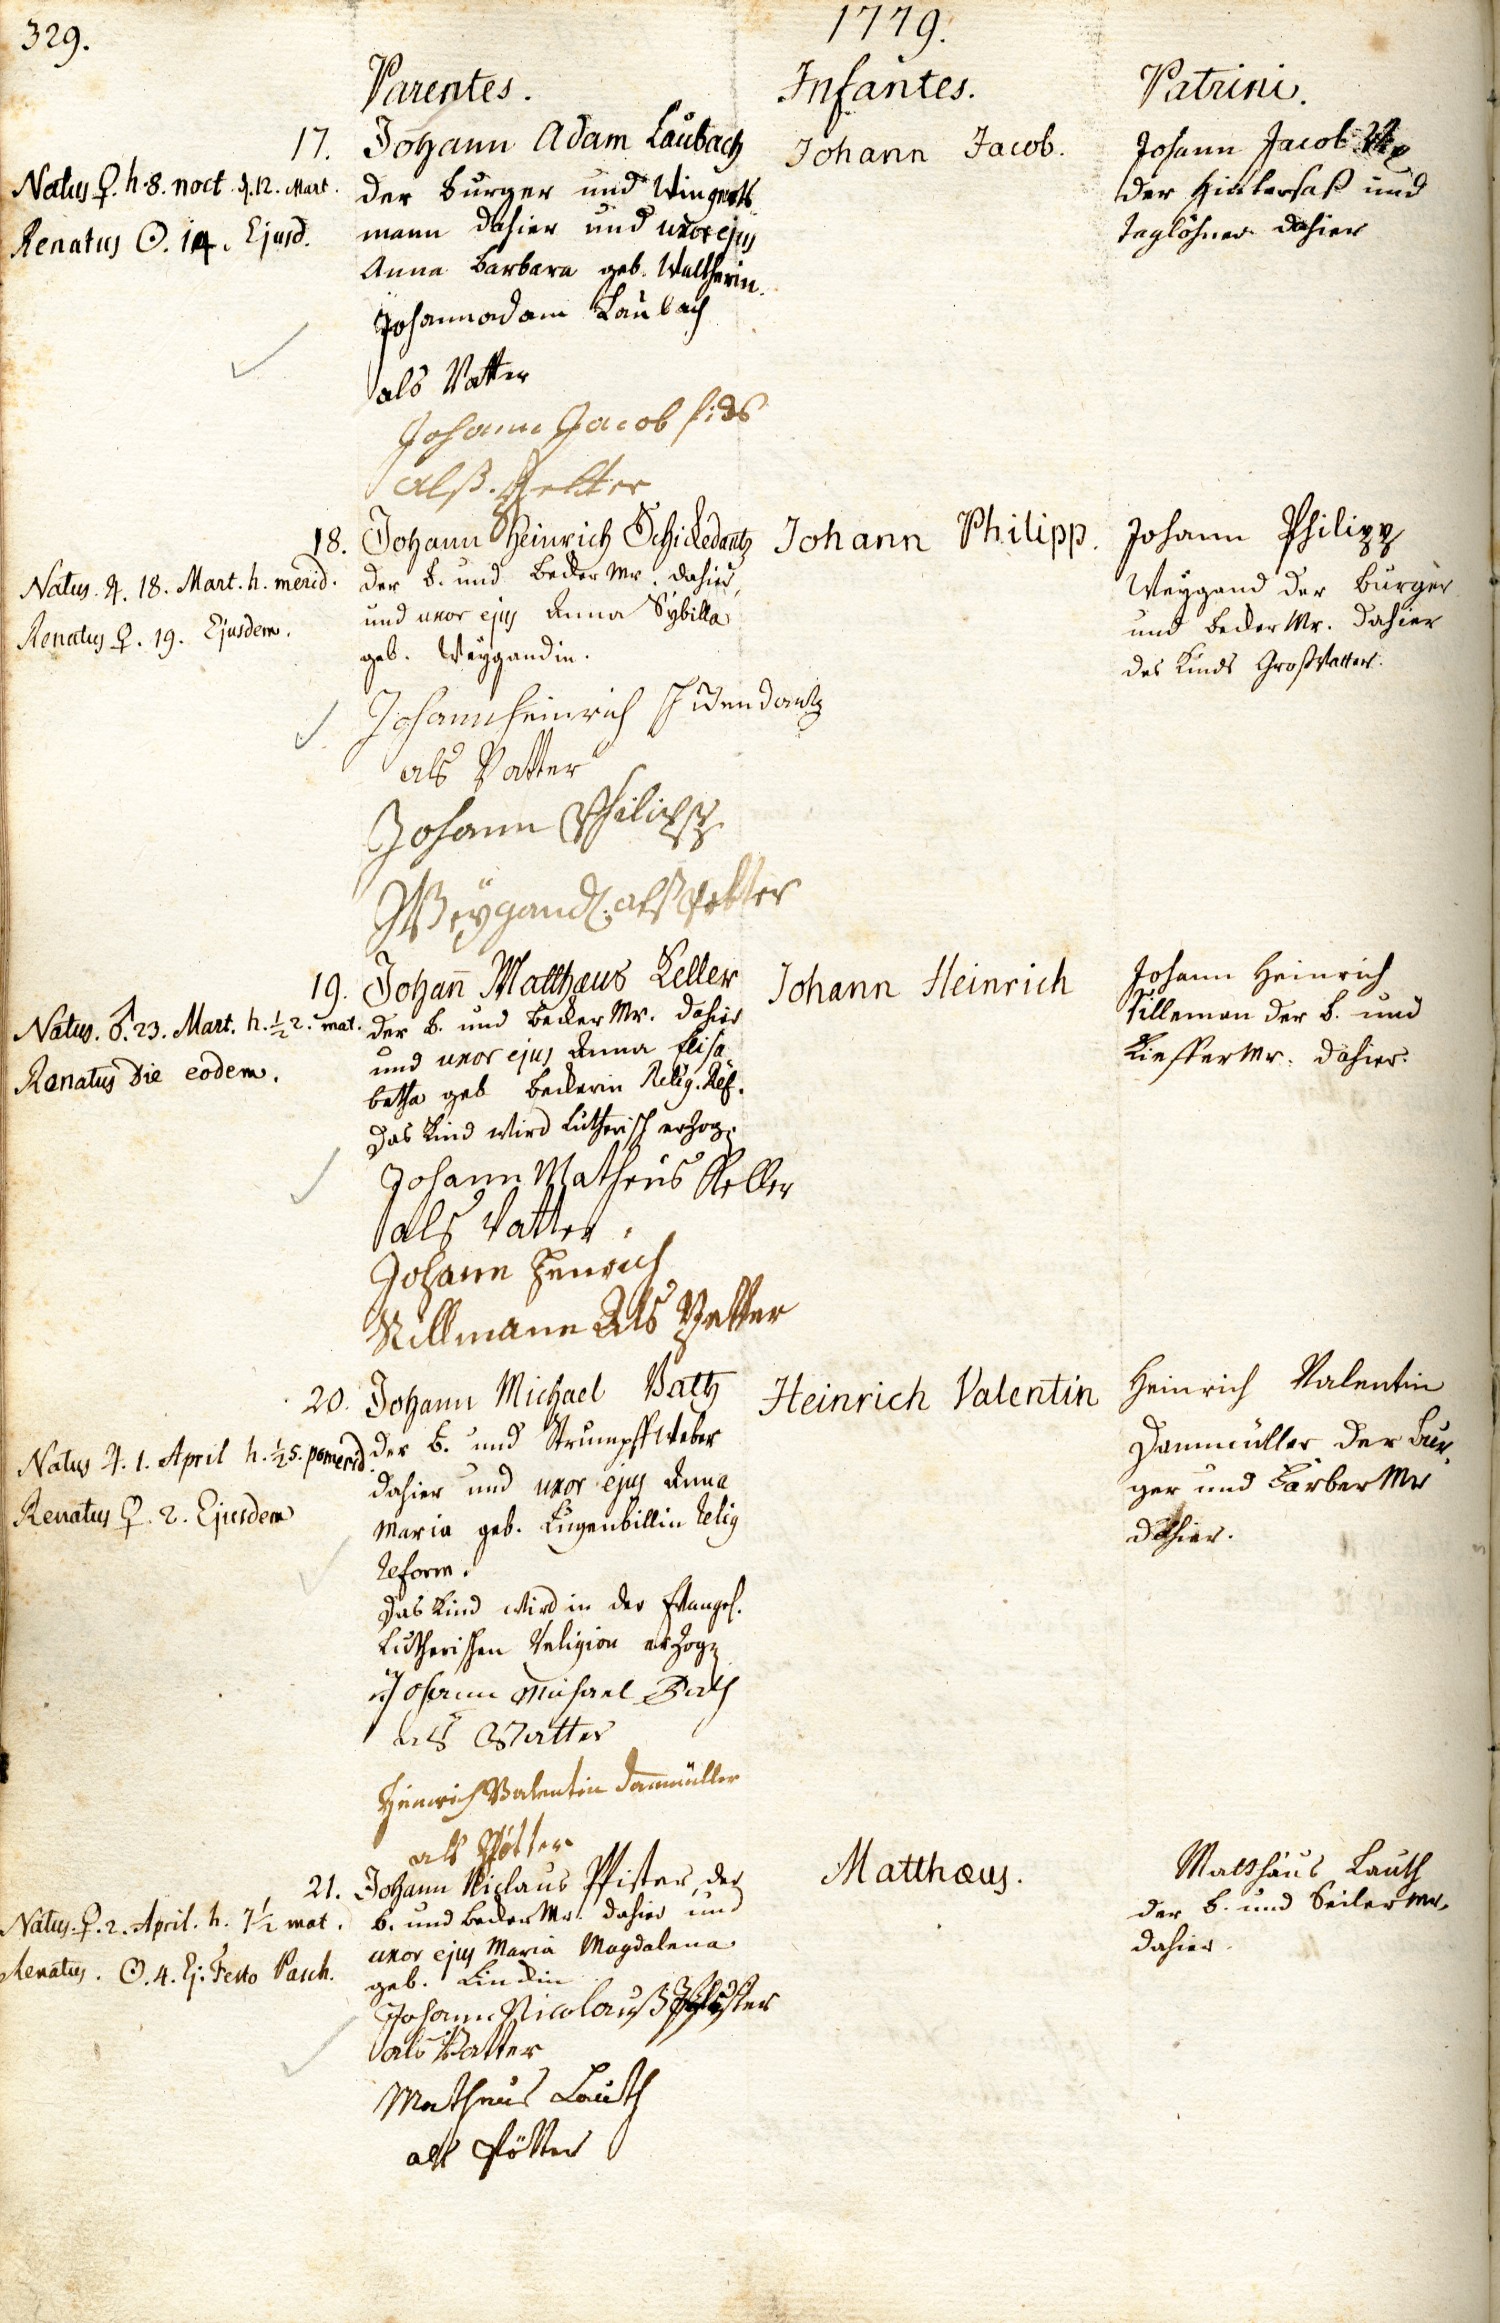 329.
1779.
Parentes.
Infantes.
Patrini.
17.
Natus ♀. h. 8. noct. d. 12. Mart.
Renatus ☉. 14. Ejusd.
Johann Adam Laubach
der Burger und Wingerts
mann dahier und uxor ejus
Anna Barbara geb. Waltherin.
Johannadam Laubach
als Vatter
Johann Jacob
alß Petter
Johann Jacob.
Johann Jacob
der Hintersaß und
Taglöhner dahier
18.
Natus ♃. 18. Mart. h. merid.
Renatus ♀. 19. Ejusdem.
Johann Heinrich Schickedantz
der B. und Becker Mr. dahier
und uxor ejus Anna Sybilla
geb. Weygandin.
Johannheinrich
als Vatter
Johann Philipp
Weÿgand alß Petter
Johann Philipp.
Johann Philipp
Weygand der Burger
und Becker Mr. dahier
des Kinds Großvatter.
19.
Natus. ♂. 23. Mart. h. ½ 2. mat.
Renatus die eodem.
Johañ Matthæus Keller
der B. und Becker Mr. dahier
und uxor ejus Anna Elisa
betha geb Beckerin Relig. Ref.
Das Kind wird Lutherisch erzog.
Johann Matheus Keller
als Vatter.
Johann Henrich
Sillmann Als Petter
Johann Heinrich
Johann Heinrich
Silleman der B. und
Kieffer Mr. dahier.
20.
Natus ♃. 1. April h. ½ 5. pomerid.
Renatus ♀. 2. Ejusdem
Johann Michael Bath
der B. und Strumpff Weber
dahier und uxor ejus Anna
Maria geb. Lugenbillin Relig
Reform.
Das Kind wird in der Evangel.
Lutherischen Religion erzog.
Johann Michael Bath
als Vatter
Heinrich Valentin Dammüller
als Pötter
Heinrich Valentin
Heinrich Valentin
Dammüller der Bur
ger und Färber Mr
dahier.
21.
Natus. ♀. 2. April. h. 7½ mat.
Renatus. ☉. 4. Ej. Festo Pasch.
Johann Niclaus Pfister, der
B. und Becker Mr. dahier und
uxor ejus Maria Magdalena
geb. Linckin
Johann Nicolauß Pfister
als Vatter
Matheus Lauth
als Pötter
Matthæus.
Matthäus Lauth
der B. und Seiler Mr.
dahier.